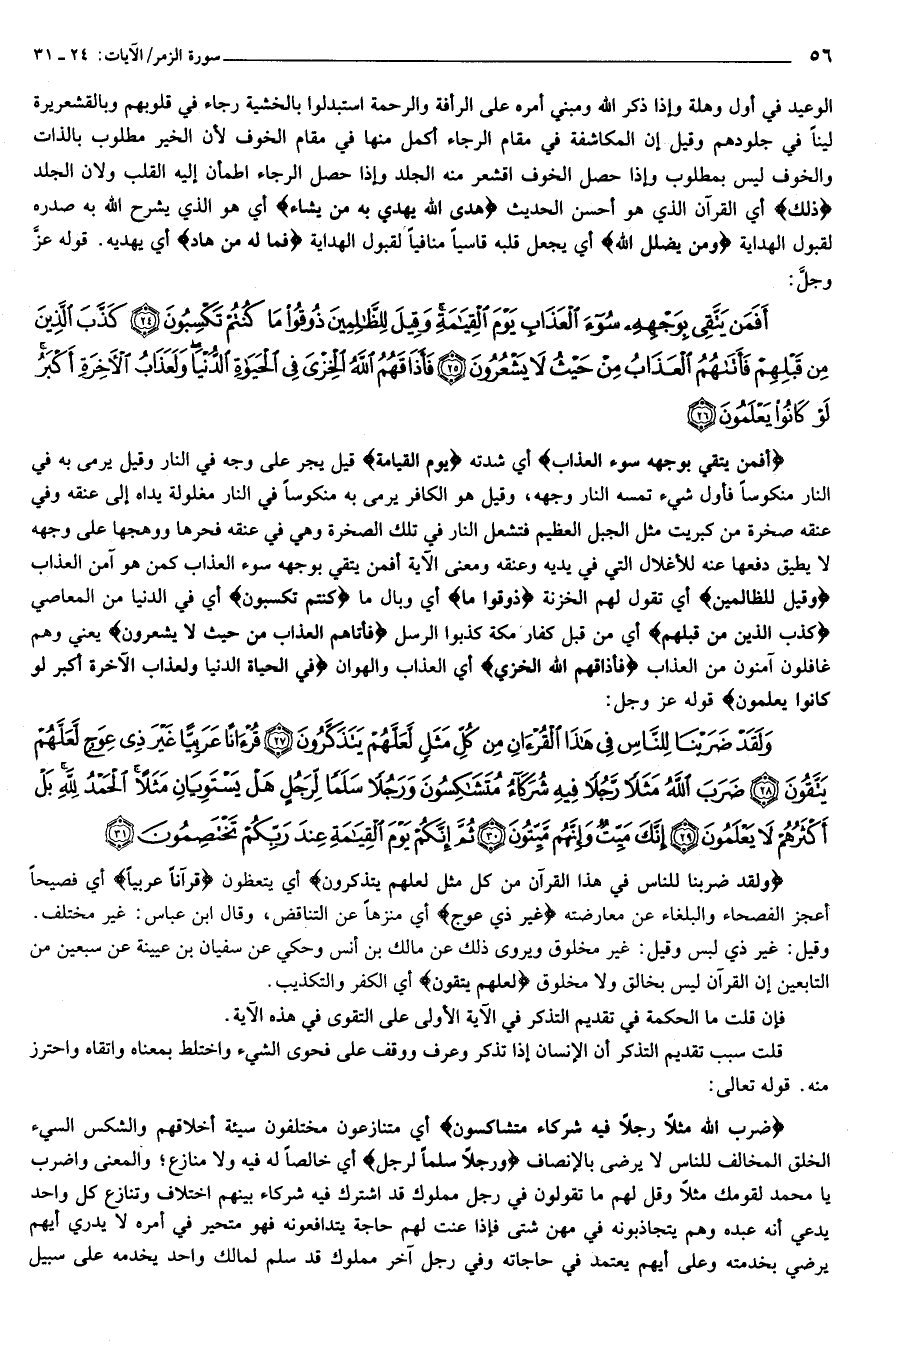 ٥٦ سورة الزمر/ الآيات: ٢٤ ـ ٣١
الوعيد في أول وهلة وإذا ذكر الله ومبني أمره على الرأفة والرحمة استبدلوا بالخشية رجاء في قلوبهم وبالقشعريرة
ليناً في جلودهم وقيل إن المكاشفة في مقام الرجاء أكمل منها في مقام الخوف لأن الخير مطلوب بالذات
والخوف ليس بمطلوب وإذا حصل الخوف اقشعر منه الجلد وإذا حصل الرجاء اطمأن إليه القلب ولان الجلد
﴿ذلك﴾ أي القرآن الذي هو أحسن الحديث ﴿هدى الله يهدي به من يشاء﴾ أي هو الذي يشرح الله به صدره
لقبول الهداية ﴿ومن يضلل الله﴾ أي يجعل قلبه قاسياً منافياً لقبول الهداية ﴿فما له من هاد﴾ أي يهديه. قوله عزَّ
وجلَّ:
أَفَمَن يَتَّقِى بِوَجْهِهِۦ سُوٓءَ ٱلْعَذَابِ يَوْمَ ٱلْقِيَٰمَةِۚ وَقِيلَ لِلظَّٰلِمِينَ ذُوقُوا۟ مَا كُنتُمْ تَكْسِبُونَ ﴿٢٤﴾ كَذَّبَ ٱلَّذِينَ
مِن قَبْلِهِمْ فَأَتَىٰهُمُ ٱلْعَذَابُ مِنْ حَيْثُ لَا يَشْعُرُونَ ﴿٢٥﴾ فَأَذَاقَهُمُ ٱللَّهُ ٱلْخِزْىَ فِى ٱلْحَيَوٰةِ ٱلدُّنْيَاۖ وَلَعَذَابُ ٱلْءَاخِرَةِ أَكْبَرُۚ
لَوْ كَانُوا۟ يَعْلَمُونَ ﴿٢٦﴾
﴿أفمن يتقي بوجهه سوء العذاب﴾ أي شدته ﴿يوم القيامة﴾ قيل يجر على وجه في النار وقيل يرمى به في
النار منكوساً فأول شيء تمسه النار وجهه، وقيل هو الكافر يرمى به منكوساً في النار مغلولة يداه إلى عنقه وفي
عنقه صخرة من كبريت مثل الجبل العظيم فتشعل النار في تلك الصخرة وهي في عنقه فحرها ووهجها على وجهه
لا يطيق دفعها عنه للأغلال التي في يديه وعنقه ومعنى الآية أفمن يتقي بوجهه سوء العذاب كمن هو آمن العذاب
﴿وقيل للظالمين﴾ أي تقول لهم الخزنة ﴿ذوقوا ما﴾ أي وبال ما ﴿كنتم تكسبون﴾ أي في الدنيا من المعاصي
﴿كذب الذين من قبلهم﴾ أي من قبل كفار مكة كذبوا الرسل ﴿فأتاهم العذاب من حيث لا يشعرون﴾ يعني وهم
غافلون آمنون من العذاب ﴿فأذاقهم الله الخزي﴾ أي العذاب والهوان ﴿في الحياة الدنيا ولعذاب الآخرة أكبر لو
كانوا يعلمون﴾ قوله عز وجل:
وَلَقَدْ ضَرَبْنَا لِلنَّاسِ فِى هَٰذَا ٱلْقُرْءَانِ مِن كُلِّ مَثَلٍ لَّعَلَّهُمْ يَتَذَكَّرُونَ ﴿٢٧﴾ قُرْءَانًا عَرَبِيًّا غَيْرَ ذِى عِوَجٍ لَّعَلَّهُمْ
يَتَّقُونَ ﴿٢٨﴾ ضَرَبَ ٱللَّهُ مَثَلًا رَّجُلًا فِيهِ شُرَكَآءُ مُتَشَٰكِسُونَ وَرَجُلًا سَلَمًا لِّرَجُلٍ هَلْ يَسْتَوِيَانِ مَثَلًاۚ ٱلْحَمْدُ لِلَّهِۚ بَلْ
أَكْثَرُهُمْ لَا يَعْلَمُونَ ﴿٢٩﴾ إِنَّكَ مَيِّتٌ وَإِنَّهُم مَّيِّتُونَ ﴿٣٠﴾ ثُمَّ إِنَّكُمْ يَوْمَ ٱلْقِيَٰمَةِ عِندَ رَبِّكُمْ تَخْتَصِمُونَ ﴿٣١﴾
﴿ولقد ضربنا للناس في هذا القرآن من كل مثل لعلهم يتذكرون﴾ أي يتعظون ﴿قرآناً عربياً﴾ أي فصيحاً
أعجز الفصحاء والبلغاء عن معارضته ﴿غير ذي عوج﴾ أي منزهاً عن التناقض، وقال ابن عباس: غير مختلف.
وقيل: غير ذي لبس وقيل: غير مخلوق ويروى ذلك عن مالك بن أنس وحكي عن سفيان بن عيينة عن سبعين من
التابعين إن القرآن ليس بخالق ولا مخلوق ﴿لعلهم يتقون﴾ أي الكفر والتكذيب.
فإن قلت ما الحكمة في تقديم التذكر في الآية الأولى على التقوى في هذه الآية.
قلت سبب تقديم التذكر أن الإنسان إذا تذكر وعرف ووقف على فحوى الشيء واختلط بمعناه واتقاه واحترز
منه. قوله تعالى:
﴿ضرب الله مثلاً رجلاً فيه شركاء متشاكسون﴾ أي متنازعون مختلفون سيئة أخلاقهم والشكس السيء
الخلق المخالف للناس لا يرضى بالإنصاف ﴿ورجلاً سلماً لرجل﴾ أي خالصاً له فيه ولا منازع؛ والمعنى واضرب
يا محمد لقومك مثلاً وقل لهم ما تقولون في رجل مملوك قد اشترك فيه شركاء بينهم اختلاف وتنازع كل واحد
يدعي أنه عبده وهم يتجاذبونه في مهن شتى فإذا عنت لهم حاجة يتدافعونه فهو متحير في أمره لا يدري أيهم
يرضي بخدمته وعلى أيهم يعتمد في حاجاته وفي رجل آخر مملوك قد سلم لمالك واحد يخدمه على سبيل